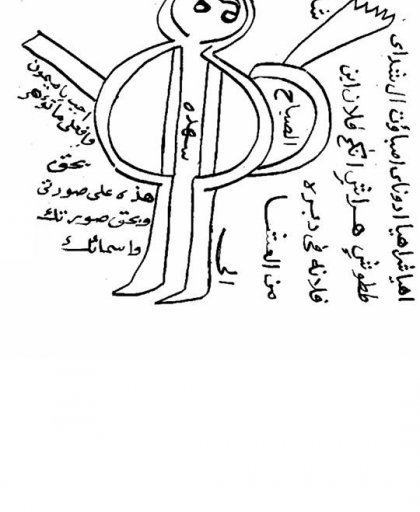 اهيا شراهيا ادوناى اصباؤت ال شداى
ططوش هراش انكح فلان ابن
فلانه فى دبره
من العشا
الى
الصباح
سهده
اجيب يا ميمون
وافعل ما تؤمر
بحق
هذه على صورتى
وبحق صورتك
واسمائك